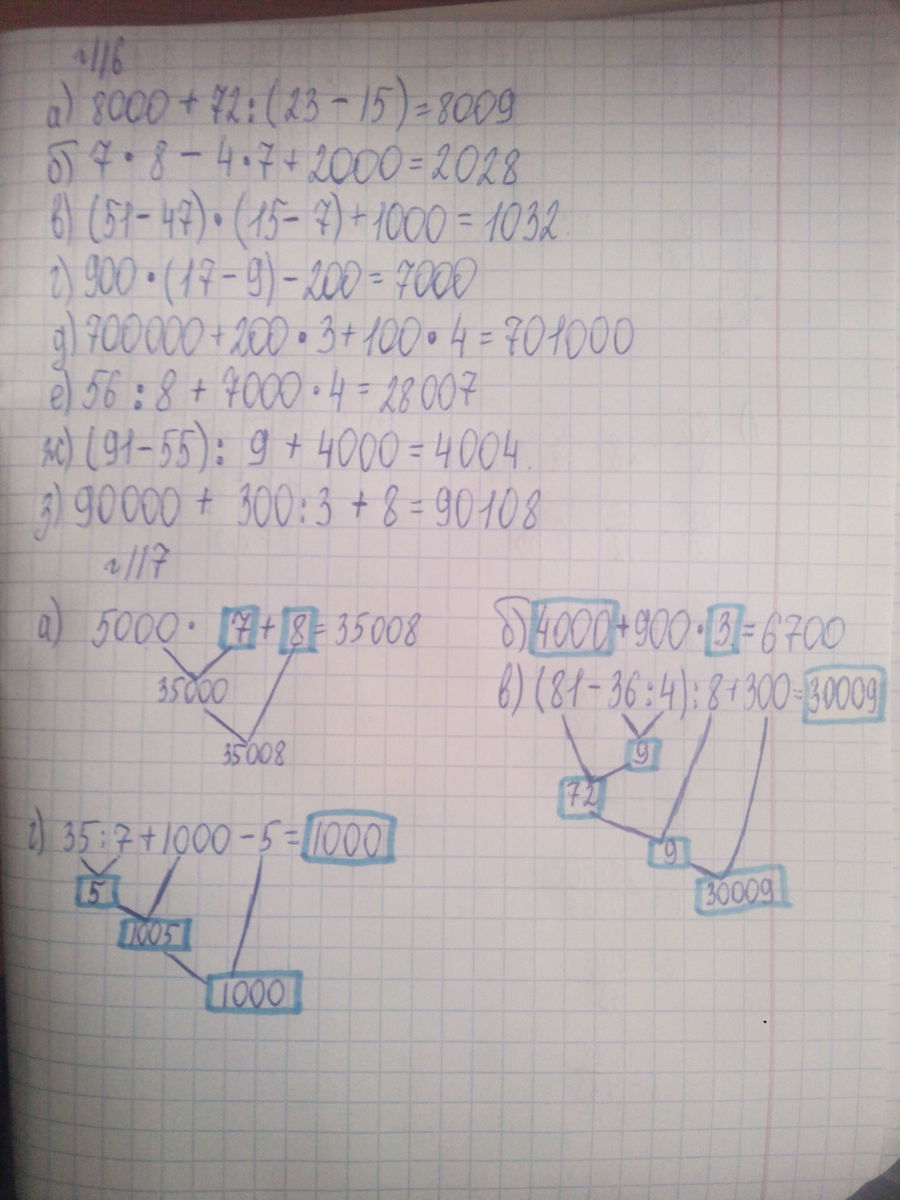 №116
а) 8000 + 72 : (23 - 15) = 8009
б) 7 · 8 - 4 · 7 + 2000 = 2028
в) (51 - 47) · (15 - 7) + 1000 = 1032
г) 900 · (17 - 9) - 200 = 7000
д) 700000 + 200 · 3 + 100 · 4 = 701000
е) 56 : 8 + 7000 · 4 = 28007
ж) (91 - 55) : 9 + 4000 = 4004
з) 90000 + 300 : 3 + 8 = 90108
№117
а) 5000 · 7 + 8 = 35008
35000
35008
б) 4000 + 900 · 3 = 6700
в) (81 - 36 : 4) : 8 + 300 = 30009
9
72
9
30009
г) 35 : 7 + 1000 - 5 = 1000
5
1005
1000